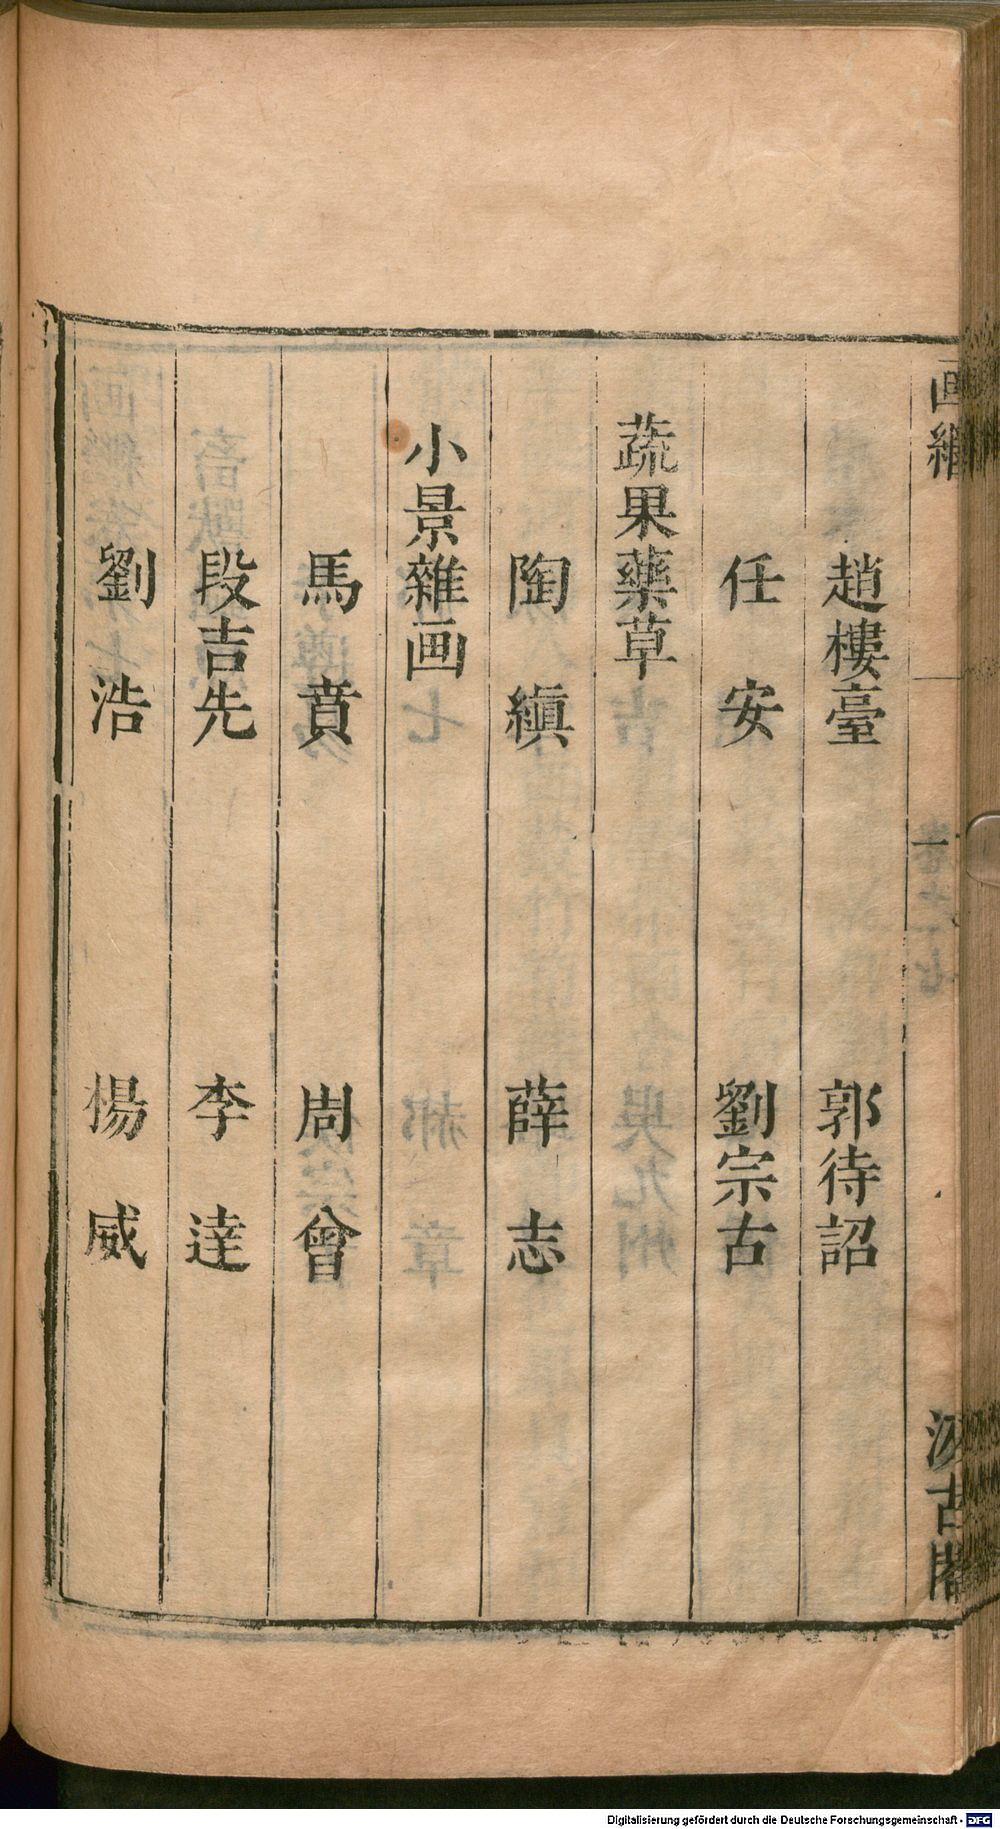 画繼
一
汲古閣
趙樓臺 郭待詔
任安 劉宗古
蔬果藥草
陶縝 薛志
小景雜画
馬賁 周曾
段吉先 李達
劉浩 楊威
Digitalisierung gefördert durch die Deutsche Forschungsgemeinschaft - DFG